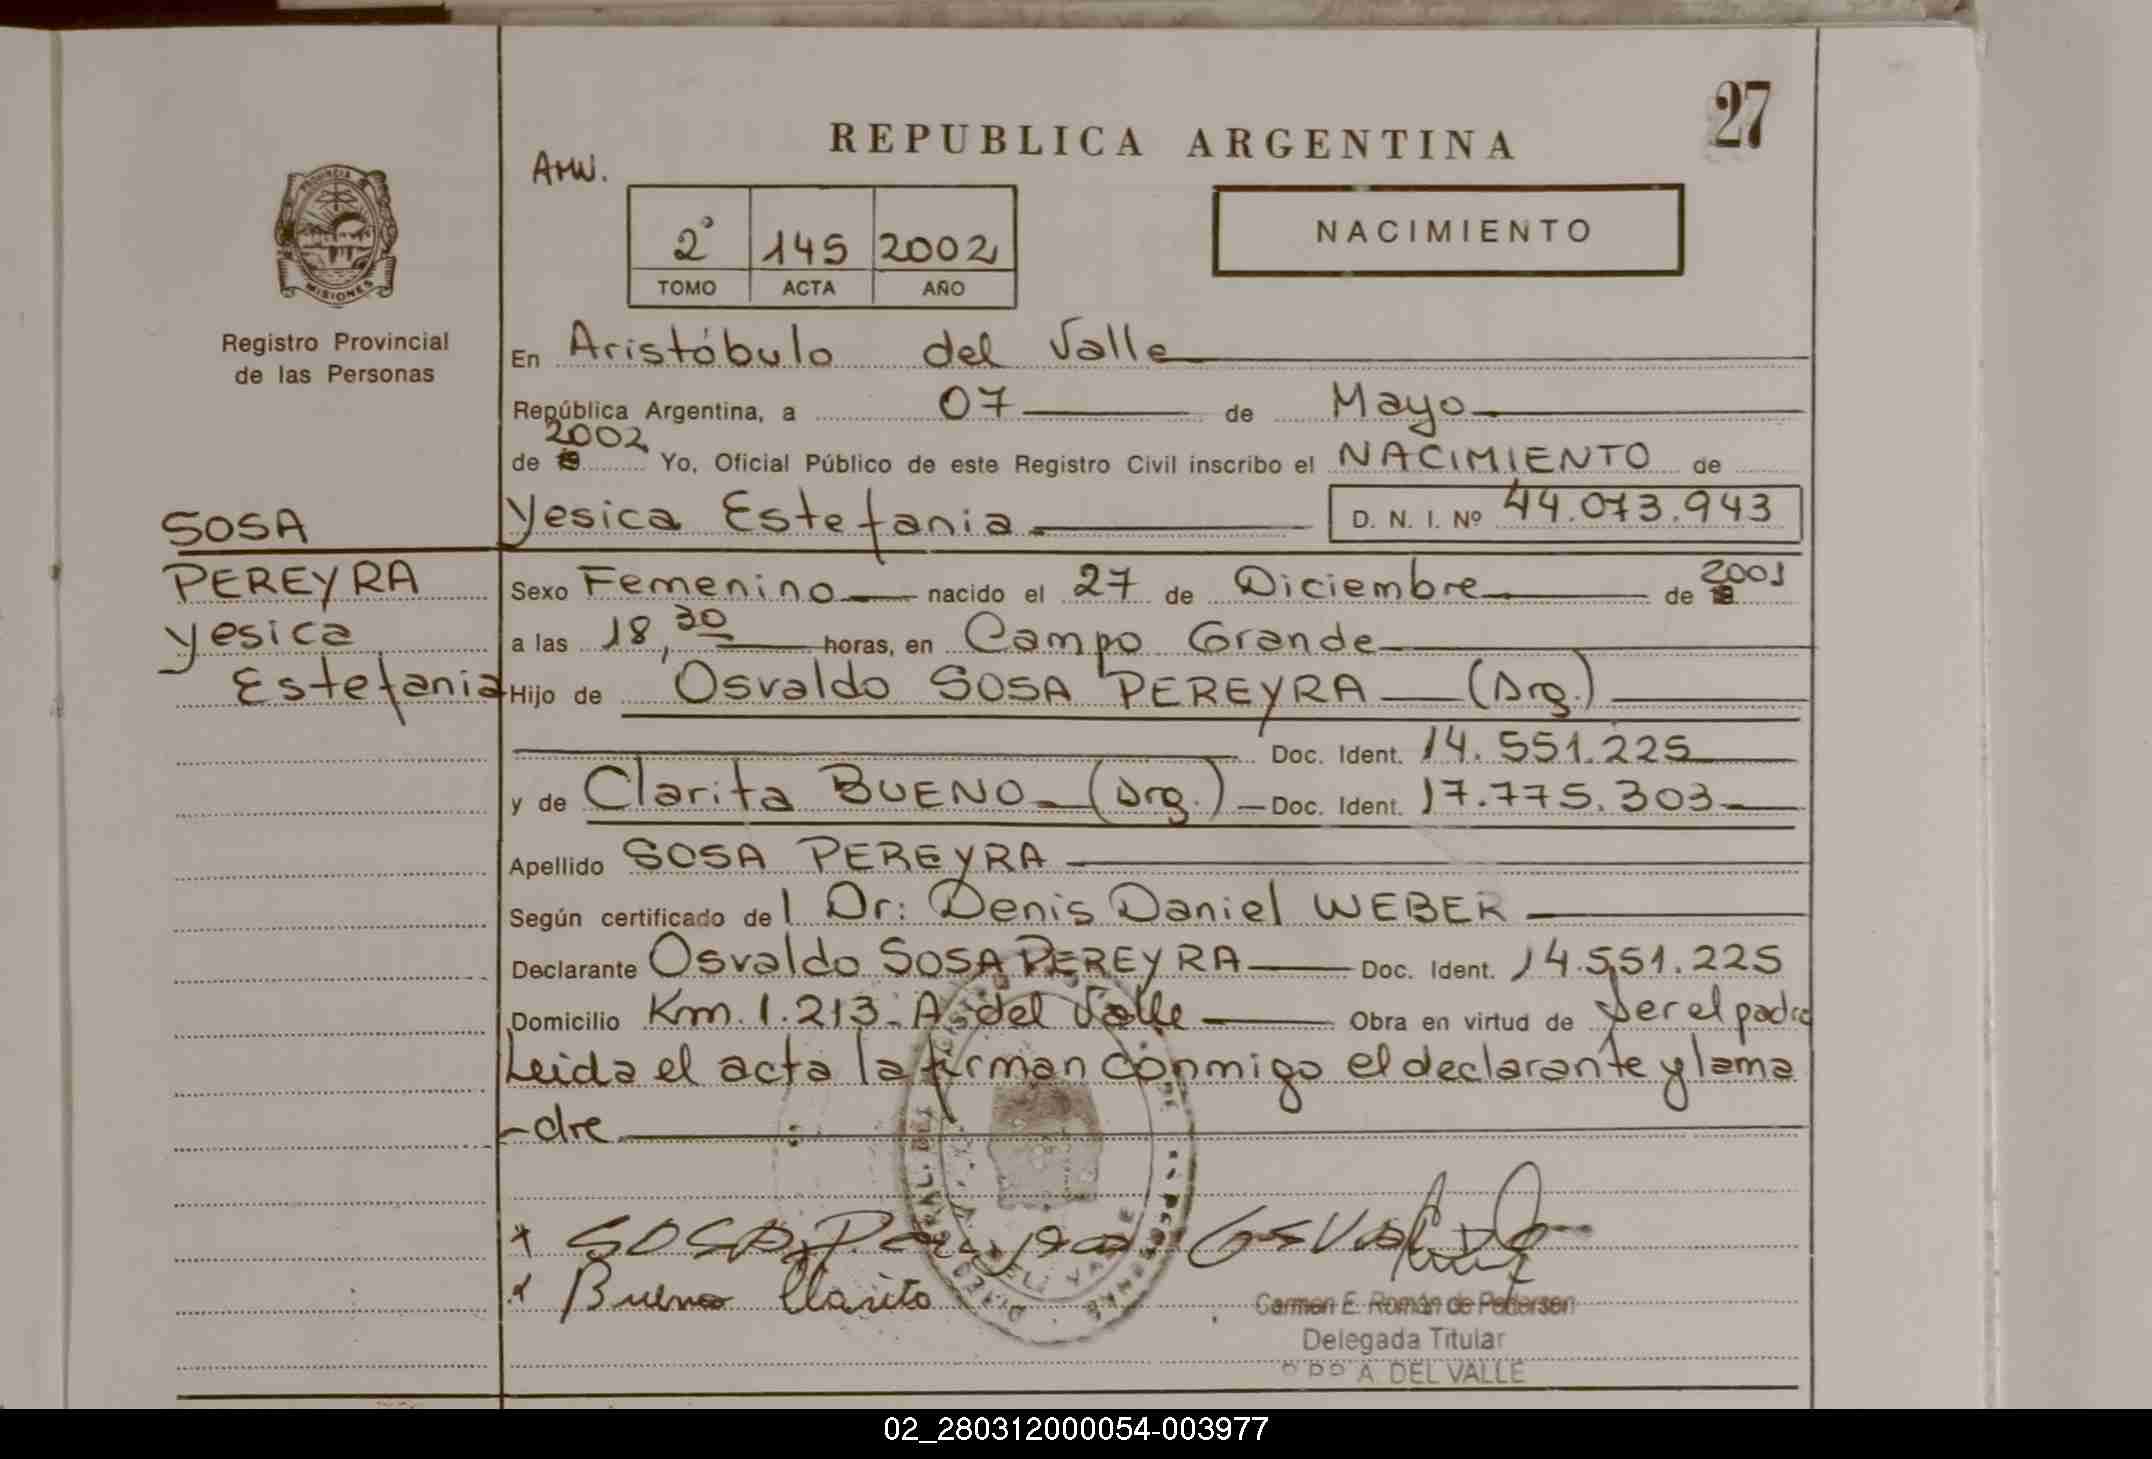 27
REPUBLICA ARGENTINA
PROVINCIA DE
MISIONES
2° 145 2002
TOMO ACTA AÑO
NACIMIENTO
Registro Provincial
de las Personas
En Aristóbulo del Valle
República Argentina, a 07 de Mayo
2002
de 19 Yo, Oficial Público de este Registro Civil inscribo el NACIMIENTO de
Yesica Estefania D. N. I. Nº 44.073.943
SOSA
PEREYRA
Yesica
Estefania
Sexo Femenino nacido el 27 de Diciembre de 2001
a las 18,30 horas, en Campo Grande
Hijo de Osvaldo SOSA PEREYRA (Arg.)
Doc. Ident. 14.551.225
y de Clarita BUENO (Arg.) Doc. Ident. 17.775.303
Apellido SOSA PEREYRA
Según certificado del Dr: Denis Daniel WEBER
Declarante Osvaldo SOSA PEREYRA Doc. Ident. 14.551.225
Domicilio Km. 1.213 - A. del Valle Obra en virtud de ser el padre
Leida el acta la firman conmigo el declarante y la ma
-dre
x SOSA Pereyra Osvaldo
x Bueno Clarita
Carmen E. Román de Pedersen
Delegada Titular
A. DEL VALLE
02_280312000054-003977